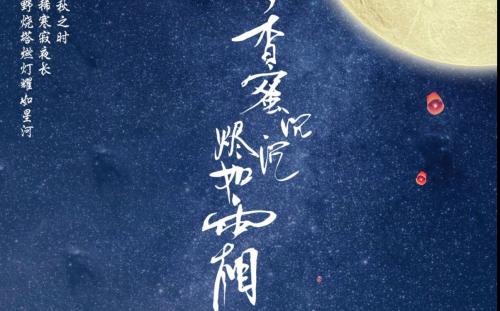 香蜜沉沉烬如霜
秋之时
稀寒寂夜长
野烧塔燃灯耀如星河